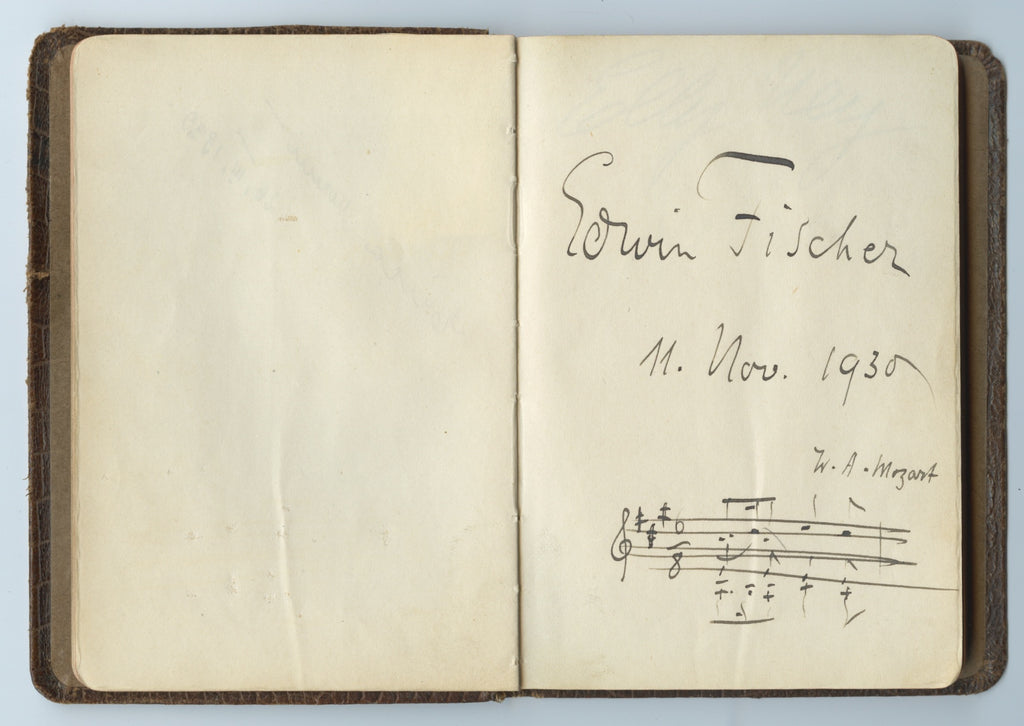 Edwin Fischer
11. Nov. 1930
W. A. Mozart
6
8